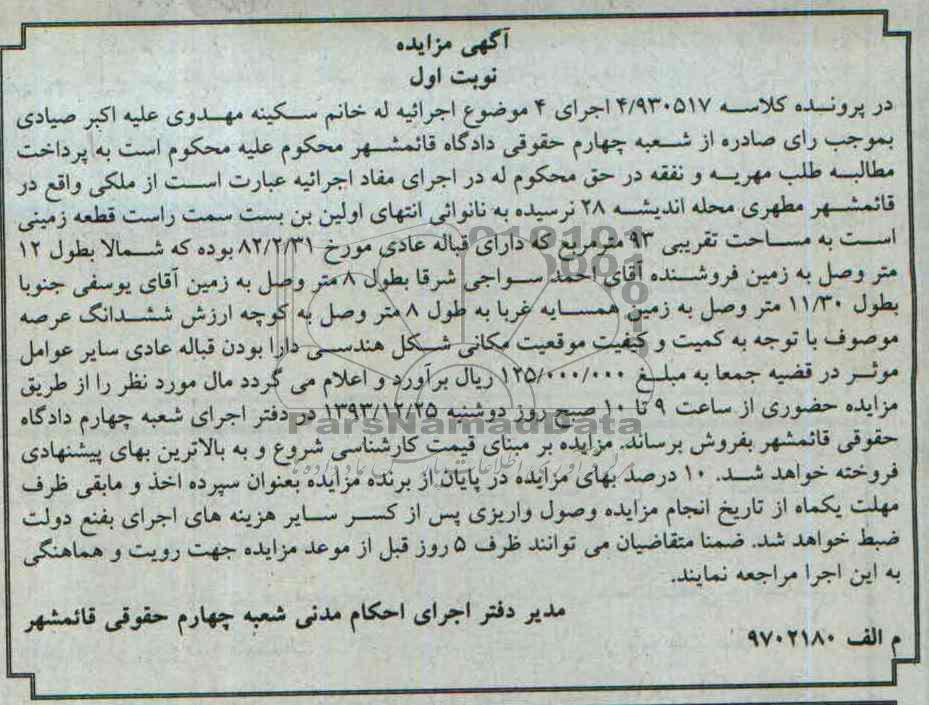 آگهی مزایده
نوبت اول
در پرونده کلاسه ۴/۹۳۰۵۱۷ اجرای ۴ موضوع اجرائیه له خانم سکینه مهدوی علیه اکبر صیادی
بموجب رای صادره از شعبه چهارم حقوقی دادگاه قائمشهر محکوم علیه محکوم است به پرداخت
مطالبه طلب مهریه و نفقه در حق محکوم له در اجرای مفاد اجرائیه عبارت است از ملکی واقع در
قائمشهر مطهری محله اندیشه ۲۸ نرسیده به نانوائی انتهای اولین بن بست سمت راست قطعه زمینی
است به مساحت تقریبی ۹۳ مترمربع که دارای قباله عادی مورخ ۸۲/۲/۳۱ بوده که شمالا بطول ۱۲
متر وصل به زمین فروشنده آقای احمد سواجی شرقا بطول ۸ متر وصل به زمین آقای یوسفی جنوبا
بطول ۱۱/۳۰ متر وصل به زمین همسایه غربا به طول ۸ متر وصل به کوچه ارزش ششدانگ عرصه
موصوف با توجه به کمیت و کیفیت موقعیت مکانی شکل هندسی دارا بودن قباله عادی سایر عوامل
موثر در قضیه جمعا به مبلغ ۱۲۵/۰۰۰/۰۰۰ ریال برآورد و اعلام می گردد مال مورد نظر را از طریق
مزایده حضوری از ساعت ۹ تا ۱۰ صبح روز دوشنبه ۱۳۹۳/۱۲/۲۵ در دفتر اجرای شعبه چهارم دادگاه
حقوقی قائمشهر بفروش برساند. مزایده بر مبنای قیمت کارشناسی شروع و به بالاترین بهای پیشنهادی
فروخته خواهد شد. ۱۰ درصد بهای مزایده در پایان از برنده مزایده بعنوان سپرده اخذ و مابقی ظرف
مهلت یکماه از تاریخ انجام مزایده وصول واریزی پس از کسر سایر هزینه های اجرای بفنع دولت
ضبط خواهد شد. ضمنا متقاضیان می توانند ظرف ۵ روز قبل از موعد مزایده جهت رویت و هماهنگی
به این اجرا مراجعه نمایند.
مدیر دفتر اجرای احکام مدنی شعبه چهارم حقوقی قائمشهر
م الف ۹۷۰۲۱۸۰
ParsNamadData